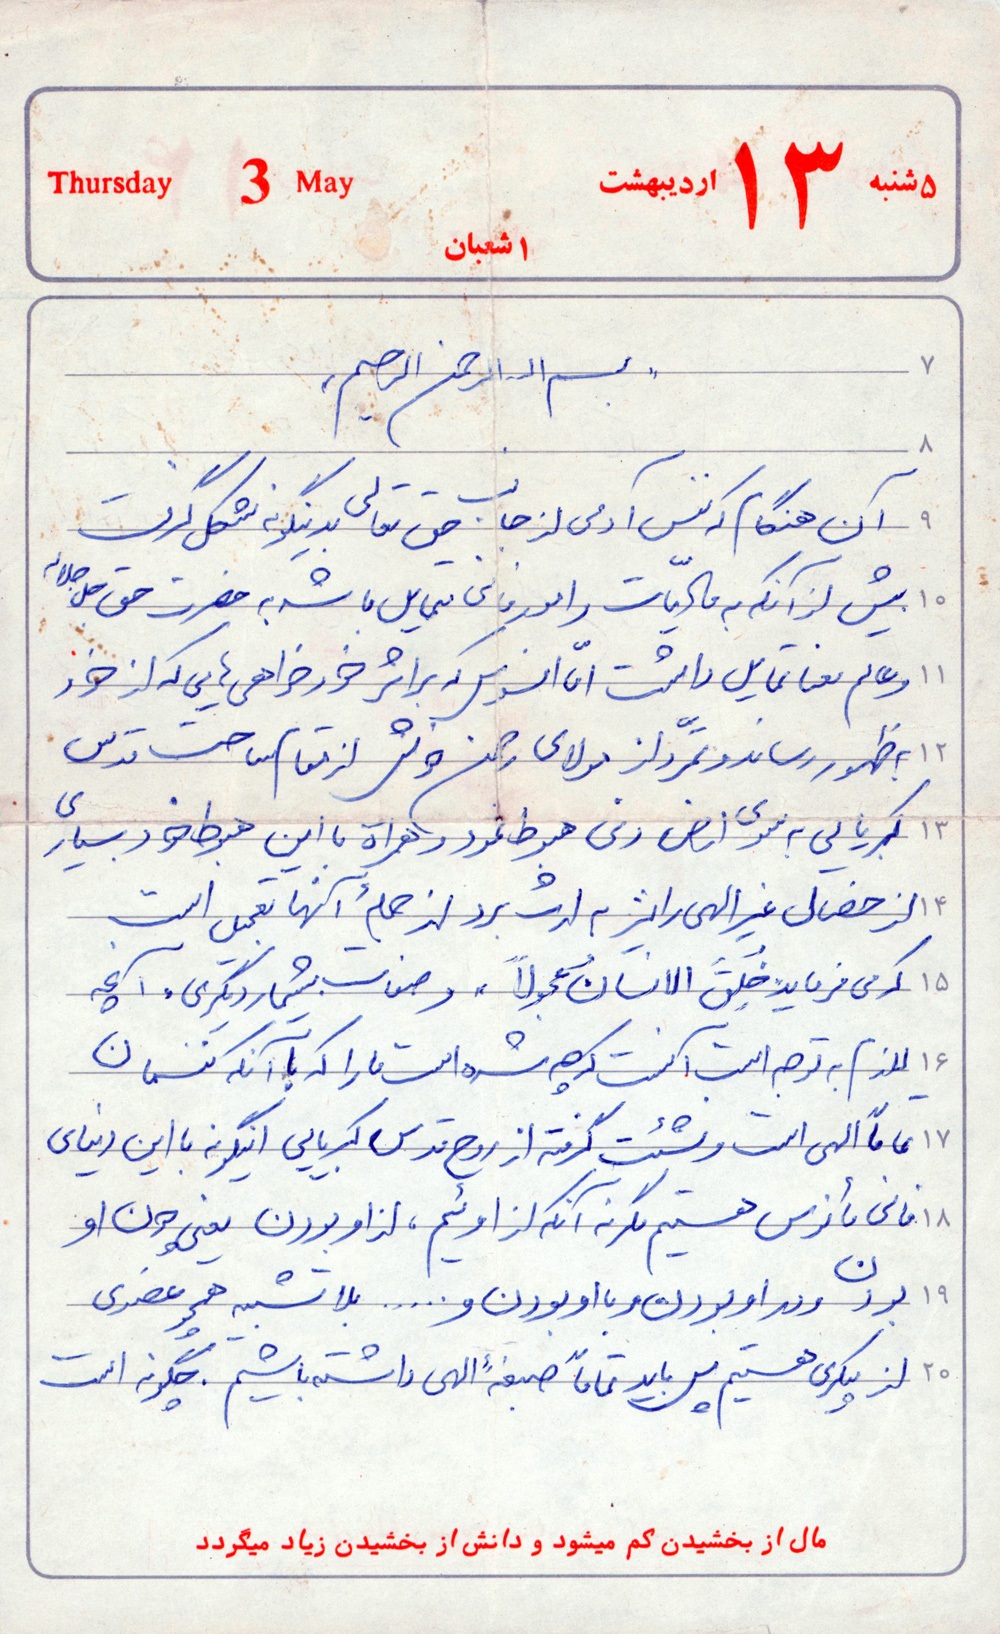 ۵شنبه ۱۳ اردیبهشت 3 May Thursday
۱ شعبان
۷ «بسم الله الرحمن الرحیم»
۸
۹ آن هنگام که نفس آدمی از جانب حق تعالی بدینگونه شکل گرفت
۱۰ بیش از آنکه به مادیّات و امور فانی متمایل باشد به حضرت حق جل جلاله
۱۱ و عالم معنا تمایل داشت امّا افسوس که بر اثر خودخواهی‌هایی که از خود
۱۲ به ظهور رساند و تمرّد از مولای رحمن خویش از مقام ساحت قدس
۱۳ کبریایی به سوی ارض دنی هبوط نمود و همراه با این هبوط خود بسیاری
۱۴ از خصال غیر الهی را نیز به ارث برد از جملهٔ آنها تعجیل است
۱۵ که می فرماید «خُلِقَ الانسانُ عجولاً» و صفات بیشمار دیگری. آنچه
۱۶ لازم به توجه است آنست که چه شده است ما را که با آنکه نفسمان
۱۷ تماماً الهی است و نشئت گرفته از روح قدس کبریایی اینگونه با این دنیای
۱۸ فانی مأنوس هستیم مگر نه آنکه از اوئیم، از او بودن یعنی چون او
۱۹ بودن و در او بودن و با او بودن و ..... بلا تشبیه همچو عضوی
۲۰ از پیکری هستیم پس باید تماماً صبغهٔ الهی داشته باشیم. چگونه است
مال از بخشیدن کم میشود و دانش از بخشیدن زیاد میگردد